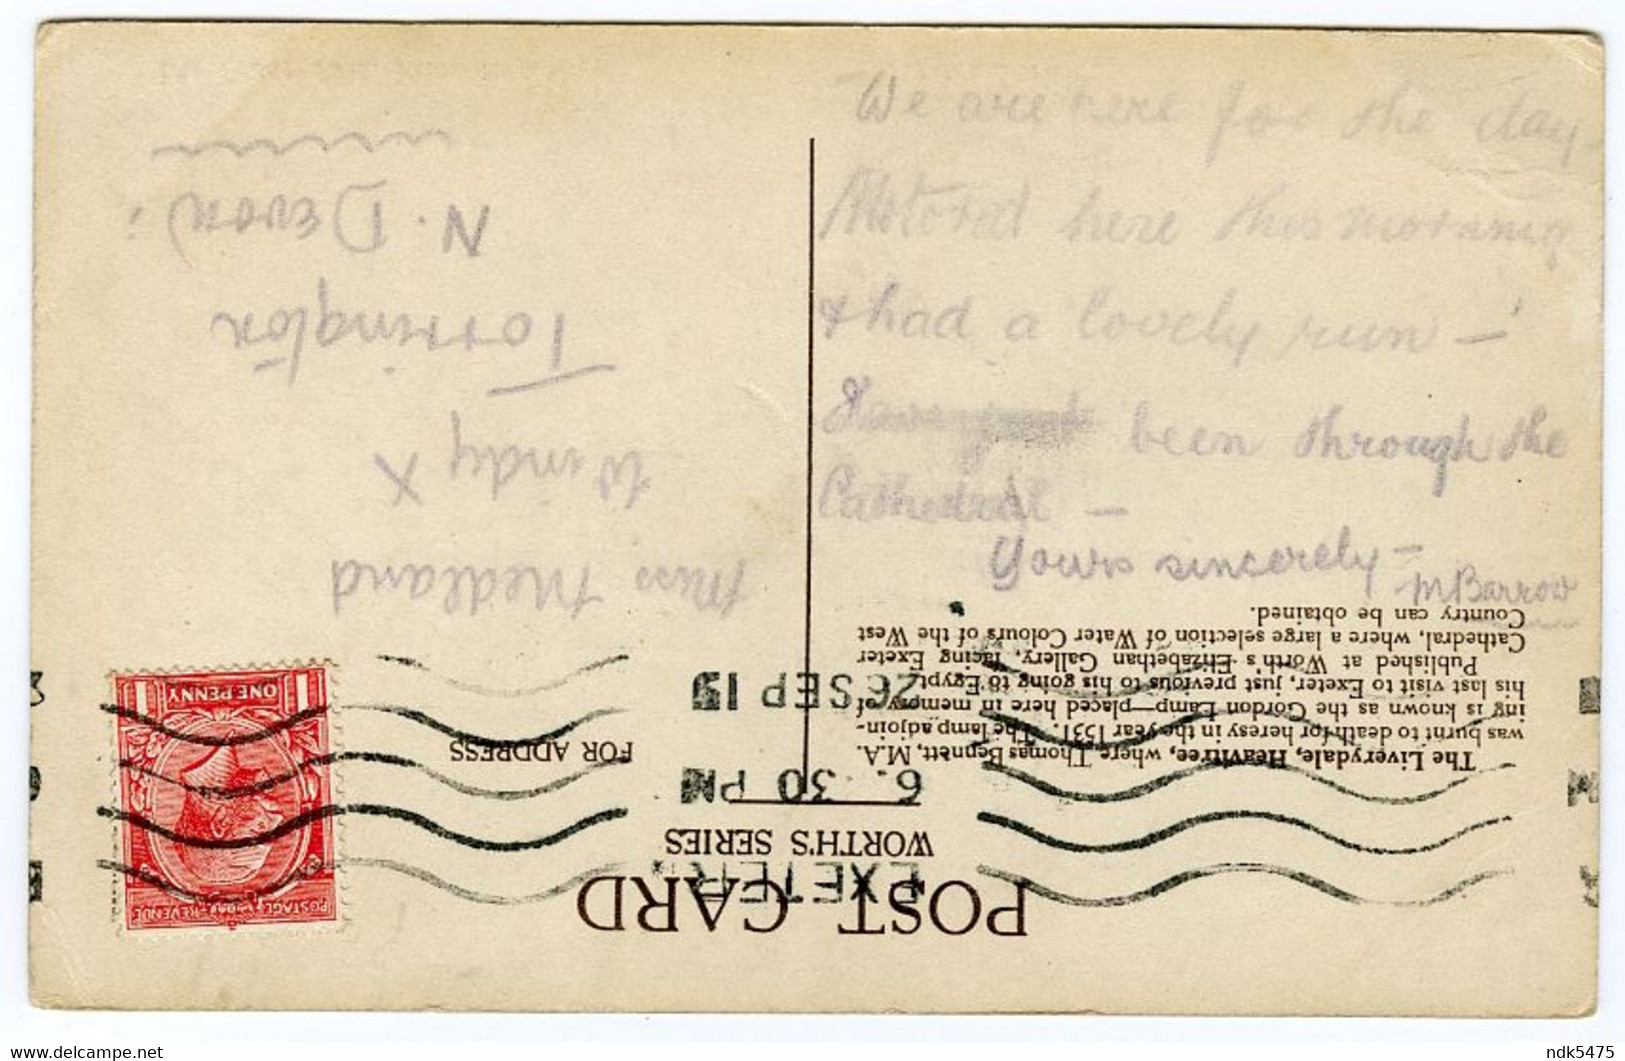 POST CARD
WORTH'S SERIES
EXETER
6. 30 PM
26 SEP 15
FOR ADDRESS
POSTAGE REVENUE
1 ONE PENNY 1
The Liverydale, Heavitree, where Thomas Bennett, M.A.
was burnt to death for heresy in the year 1531. The lamp adjoin-
ing is known as the Gordon Lamp—placed here in memory of
his last visit to Exeter, just previous to his going to Egypt.
Published at Worth's Elizabethan Gallery, facing Exeter
Cathedral, where a large selection of Water Colours of the West
Country can be obtained.
We are here for the day-
Motored here this morning
& had a lovely run —
been through the
Cathedral —
Yours sincerely —
M Barrow
Miss Medland
Windy X
Torrington
N. Devon.
ndk5475